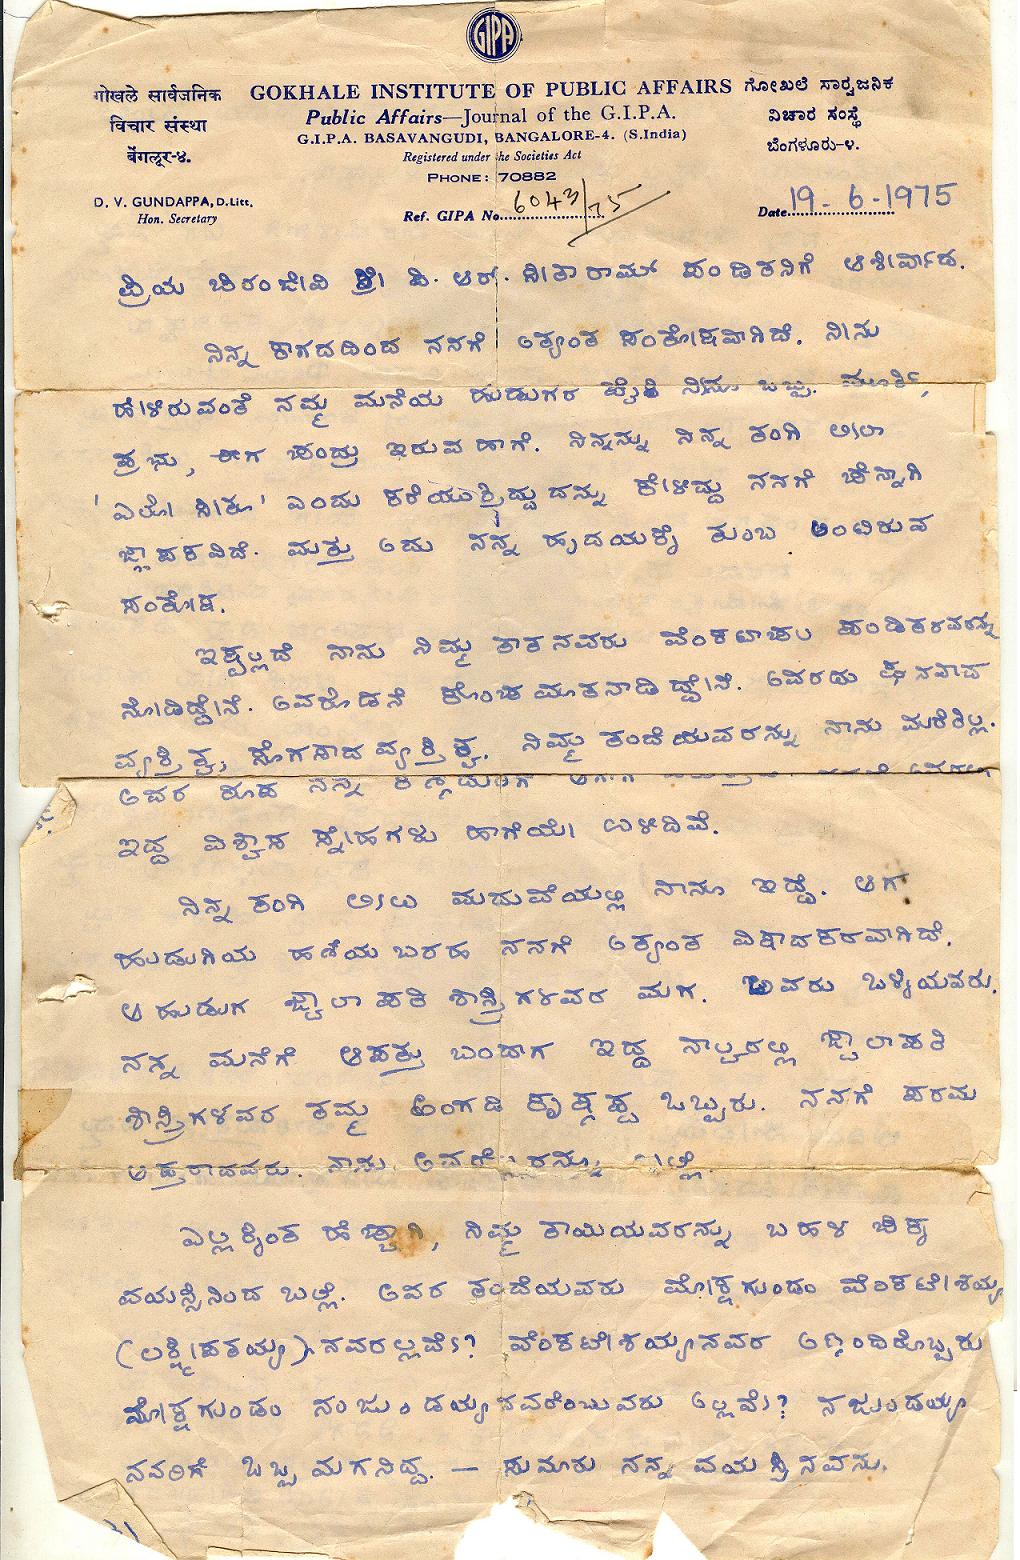 GIPA
गोखले सार्वजनिक
विचार संस्था
बेंगलूर-४.
GOKHALE INSTITUTE OF PUBLIC AFFAIRS
Public Affairs—Journal of the G.I.P.A.
G.I.P.A. BASAVANGUDI, BANGALORE-4. (S.India)
Registered under the Societies Act
PHONE: 70882
ಗೋಖಲೆ ಸಾರ್ವಜನಿಕ
ವಿಚಾರ ಸಂಸ್ಥೆ
ಬೆಂಗಳೂರು-೪.
D. V. GUNDAPPA, D.Litt.
Hon. Secretary
Ref. GIPA No. 6043/75
Date 19-6-1975
ಪ್ರಿಯ ಚಿರಂಜೀವಿ ಶ್ರೀ ವಿ. ಆರ್. ಸೀತಾರಾಮ್ ಪಂಡಿತನಿಗೆ ಆಶೀರ್ವಾದ.
ನಿನ್ನ ಕಾಗದದಿಂದ ನನಗೆ ಅತ್ಯಂತ ಸಂತೋಷವಾಗಿದೆ. ನೀನು
ಹೇಳಿರುವಂತೆ ನಮ್ಮ ಮನೆಯ ಹುಡುಗರ ಪೈಕಿ ನೀನೂ ಒಬ್ಬ. ಮೂರ್ತಿ,
ಪ್ರಭು, ಈಗ ಚಂದ್ರು ಇರುವ ಹಾಗೆ. ನಿನ್ನನ್ನು ನಿನ್ನ ತಂಗಿ ಲೀಲಾ
'ಏಲೋ ಸೀತೂ' ಎಂದು ಕರೆಯುತ್ತಿದ್ದುದನ್ನು ಕೇಳಿದ್ದು ನನಗೆ ಚೆನ್ನಾಗಿ
ಜ್ಞಾಪಕವಿದೆ. ಮತ್ತು ಅದು ನನ್ನ ಹೃದಯಕ್ಕೆ ತುಂಬ ಅಂಟಿರುವ
ಸಂತೋಷ.
ಇಷ್ಟಲ್ಲದೆ ನಾನು ನಿಮ್ಮ ತಾತನವರು ವೆಂಕಟಾಚಲ ಪಂಡಿತರವರನ್ನು
ನೋಡಿದ್ದೇನೆ. ಅವರೊಡನೆ ಕೊಂಚ ಮಾತನಾಡಿದ್ದೇನೆ. ಅವರದು ಘನವಾದ
ವ್ಯಕ್ತಿತ್ವ, ಸೊಗಸಾದ ವ್ಯಕ್ತಿತ್ವ. ನಿಮ್ಮ ತಂದೆಯವರನ್ನು ನಾನು ಮರೆತಿಲ್ಲ.
ಅವರ ರೂಪ ನನ್ನ ಕಣ್ಣಮುಂದೆ
ಇದ್ದ ವಿಶ್ವಾಸ ಸ್ನೇಹಗಳು ಹಾಗೆಯೇ ಉಳಿದಿವೆ.
ನಿನ್ನ ತಂಗಿ ಲೀಲು ಮದುವೆಯಲ್ಲಿ ನಾನೂ ಇದ್ದೆ. ಆಗ
ಹುಡುಗಿಯ ಹಣೆಯ ಬರಹ ನನಗೆ ಅತ್ಯಂತ ವಿಷಾದಕರವಾಗಿದೆ.
ಆ ಹುಡುಗ ಜ್ವಾಲಾಪತಿ ಶಾಸ್ತ್ರಿಗಳವರ ಮಗ. ಅವರು ಒಳ್ಳೆಯವರು.
ನನ್ನ ಮನೆಗೆ ಆಪತ್ತು ಬಂದಾಗ ಇದ್ದ ನಾಲ್ವರಲ್ಲಿ ಜ್ವಾಲಾಪತಿ
ಶಾಸ್ತ್ರಿಗಳವರ ತಮ್ಮ ಅಂಗಡಿ ಕೃಷ್ಣಪ್ಪ ಒಬ್ಬರು. ನನಗೆ ಪರಮ
ಆಪ್ತರಾದವರು. ನಾನು ಬಲ್ಲೆ.
ಎಲ್ಲಕ್ಕಿಂತ ಹೆಚ್ಚಾಗಿ, ನಿಮ್ಮ ತಾಯಿಯವರನ್ನು ಬಹಳ ಚಿಕ್ಕ
ವಯಸ್ಸಿನಿಂದ ಬಲ್ಲೆ. ಅವರ ತಂದೆಯವರು ಮೋಕ್ಷಗುಂಡಂ ವೆಂಕಟೇಶಯ್ಯ
(ಲಕ್ಷ್ಮೀಪತಯ್ಯ) ನವರಲ್ಲವೆ? ವೆಂಕಟೇಶಯ್ಯನವರ ಅಣ್ಣಂದಿರೊಬ್ಬರು
ಮೋಕ್ಷಗುಂಡಂ ನಂಜುಂಡಯ್ಯನವರೆಂಬುವರು ಅಲ್ಲವೆ? ನಂಜುಂಡಯ್ಯ
ನವರಿಗೆ ಒಬ್ಬ ಮಗನಿದ್ದ. — ಸುಮಾರು ನನ್ನ ವಯಸ್ಸಿನವನು.